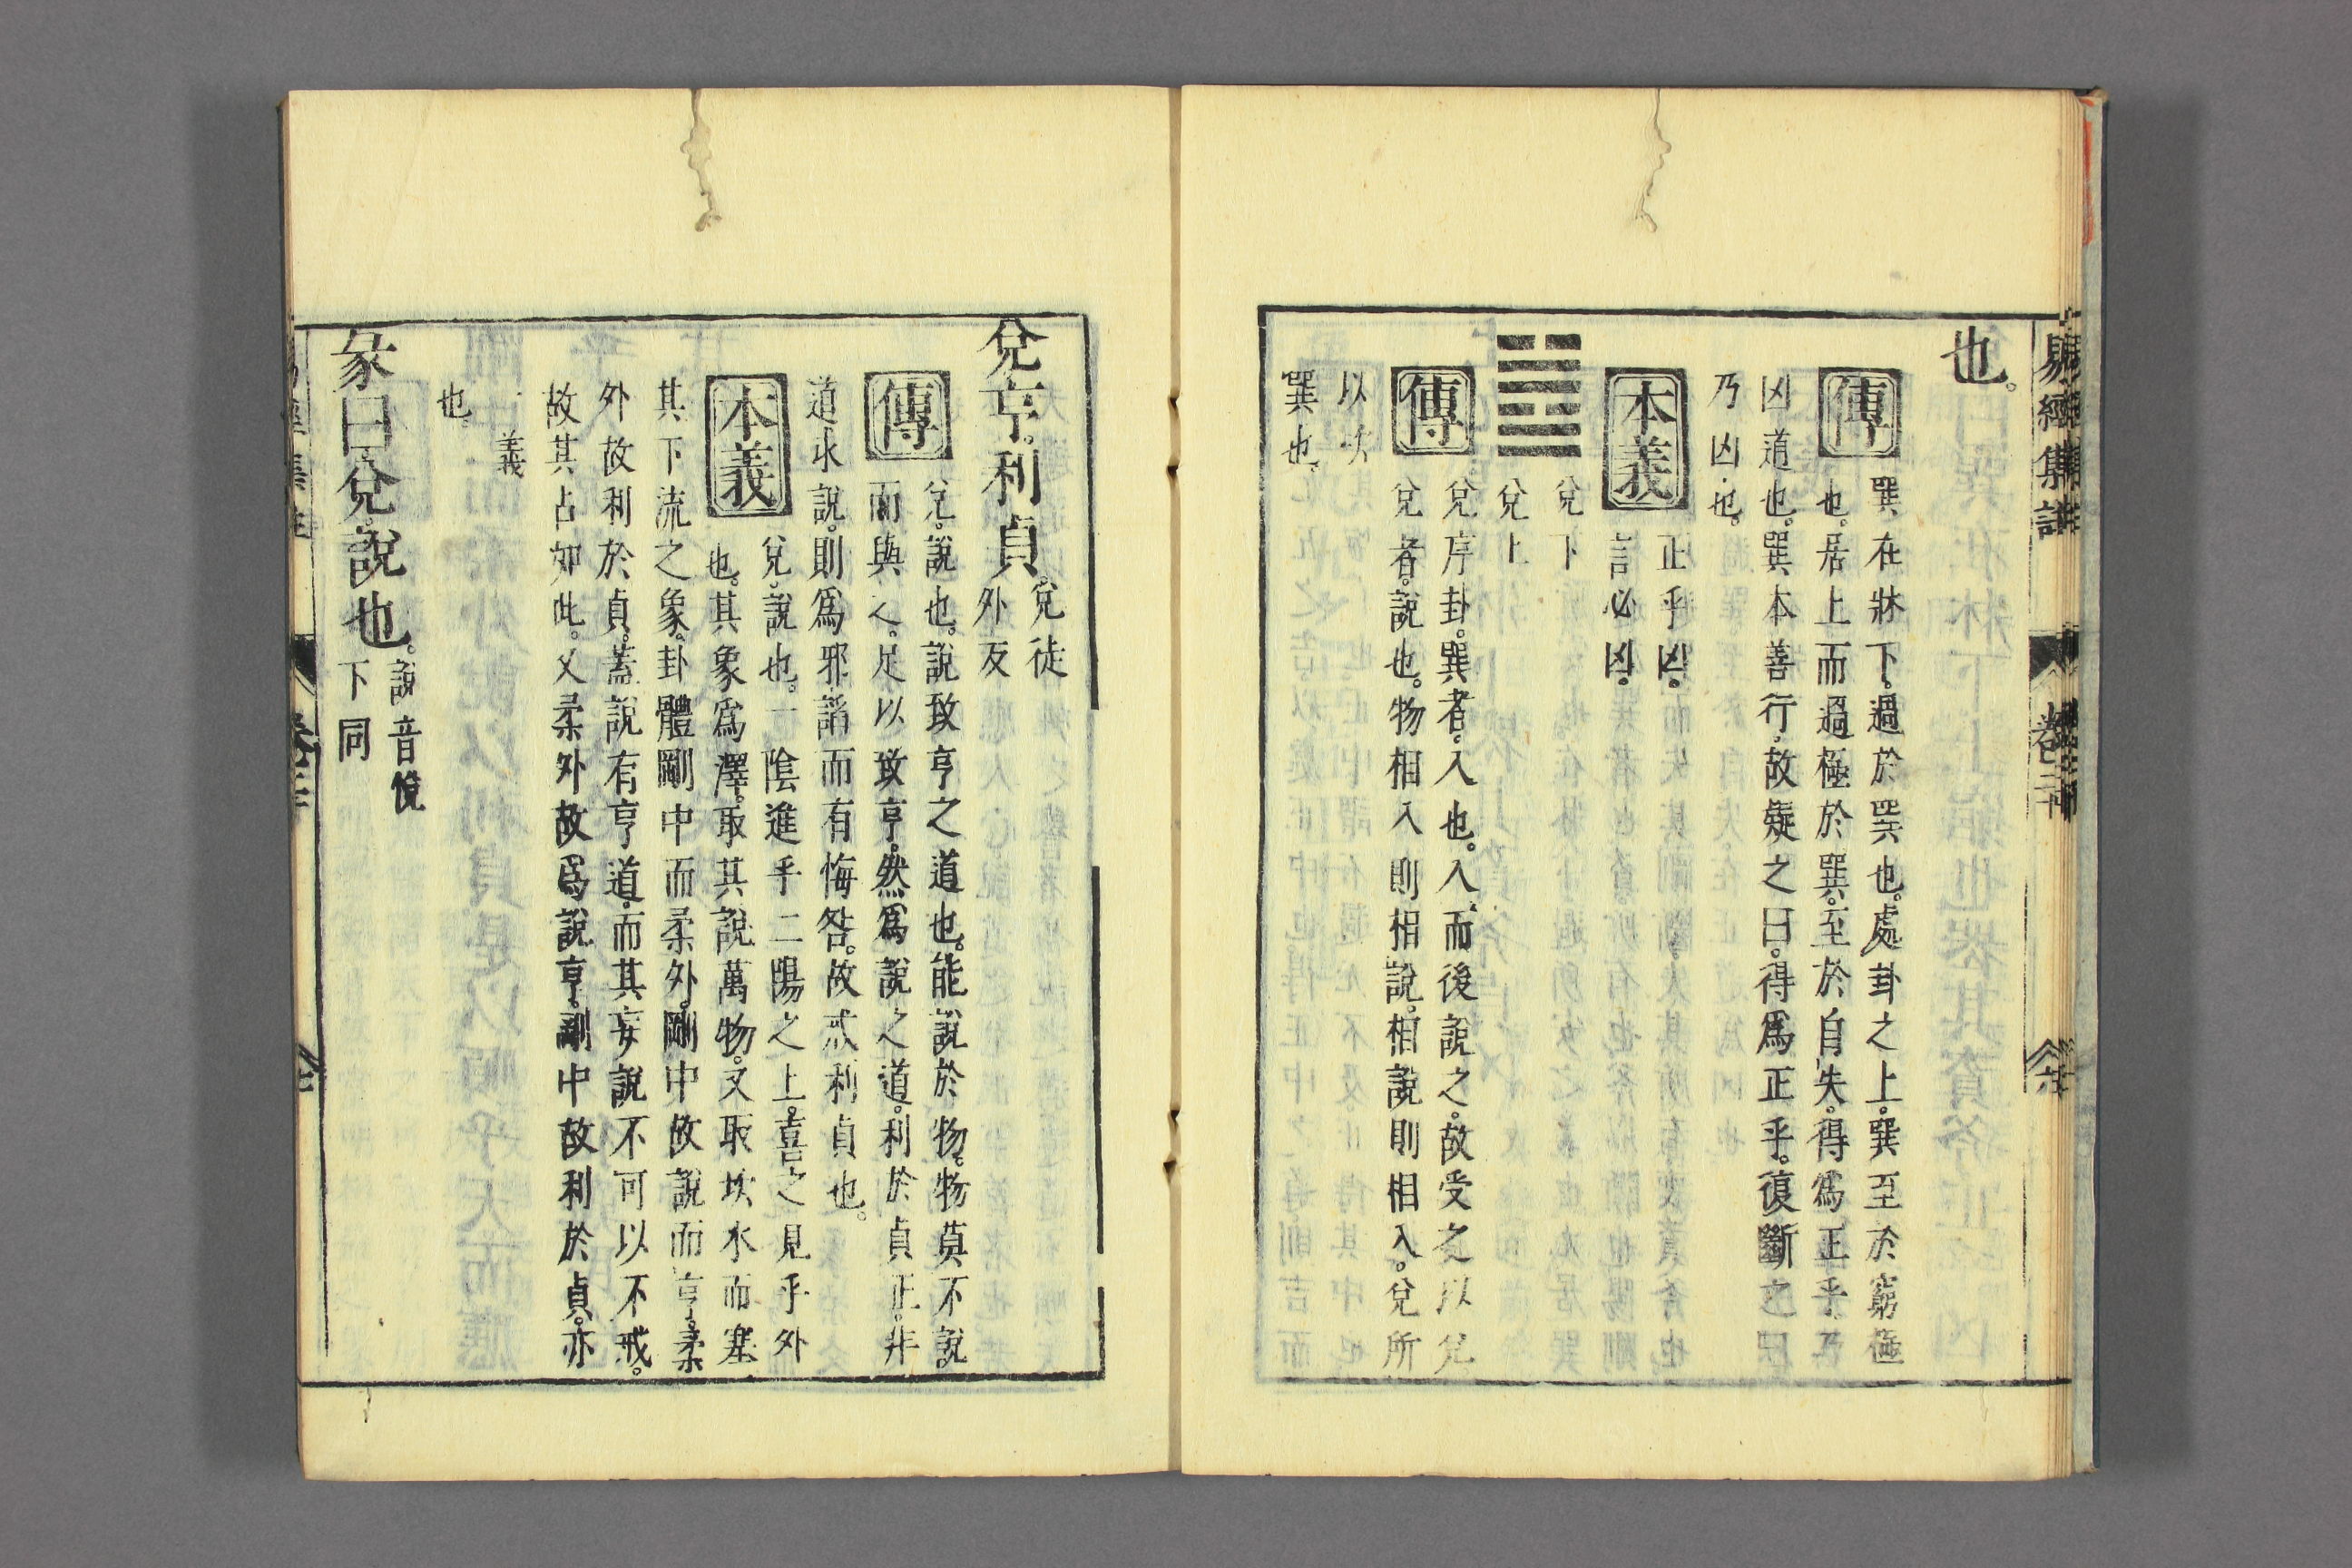 也。
傳 巽在牀下。過於巽也。處卦之上。巽至於窮極
也。居上而過極於巽。至於自失。得爲正乎。乃
凶道也。巽本善行。故疑之曰。得爲正乎。復斷之曰
乃凶也。
本義 正乎凶。
言必凶。
兌下
兌上
傳 兌序卦。巽者。入也。入而後說之。故受之以兌
兌者。說也。物相入則相說。相說則相入。兌所
以次
巽也。
兌亨。利貞。兌徒
外反
傳 兌。說也。說致亨之道也。能說於物。物莫不說。
而與之。足以致亨。然爲說之道。利於貞正。非
道求說。則爲邪諂而有悔咎。故戒利貞也。
本義 兌。說也。一陰進乎二陽之上。喜之見乎外
也。其象爲澤。取其說萬物。又取坎水而塞
其下流之象。卦體剛中而柔外。剛中故說而亨。柔
外故利於貞。蓋說有亨道。而其妄說不可以不戒。
故其占如此。又柔外故爲說亨。剛中故利於貞。亦
一義
也。
彖曰。兌。說也。說音悅
下同
易經集註
卷二十